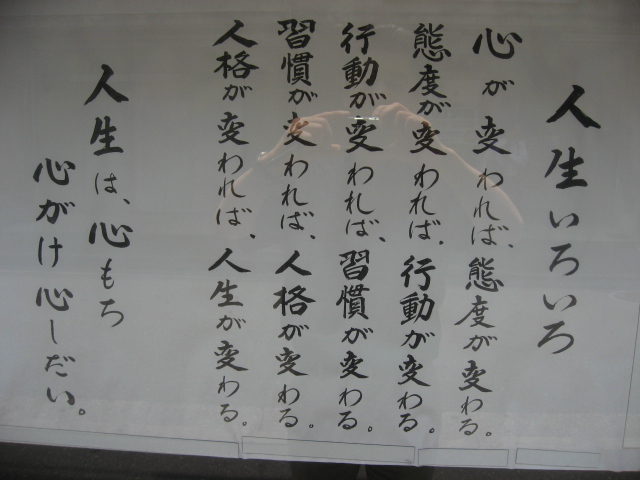 人生いろいろ
心が変われば、態度が変わる。
態度が変われば、行動が変わる。
行動が変われば、習慣が変わる。
習慣が変われば、人格が変わる。
人格が変われば、人生が変わる。
人生は、心もち
心がけ心しだい。